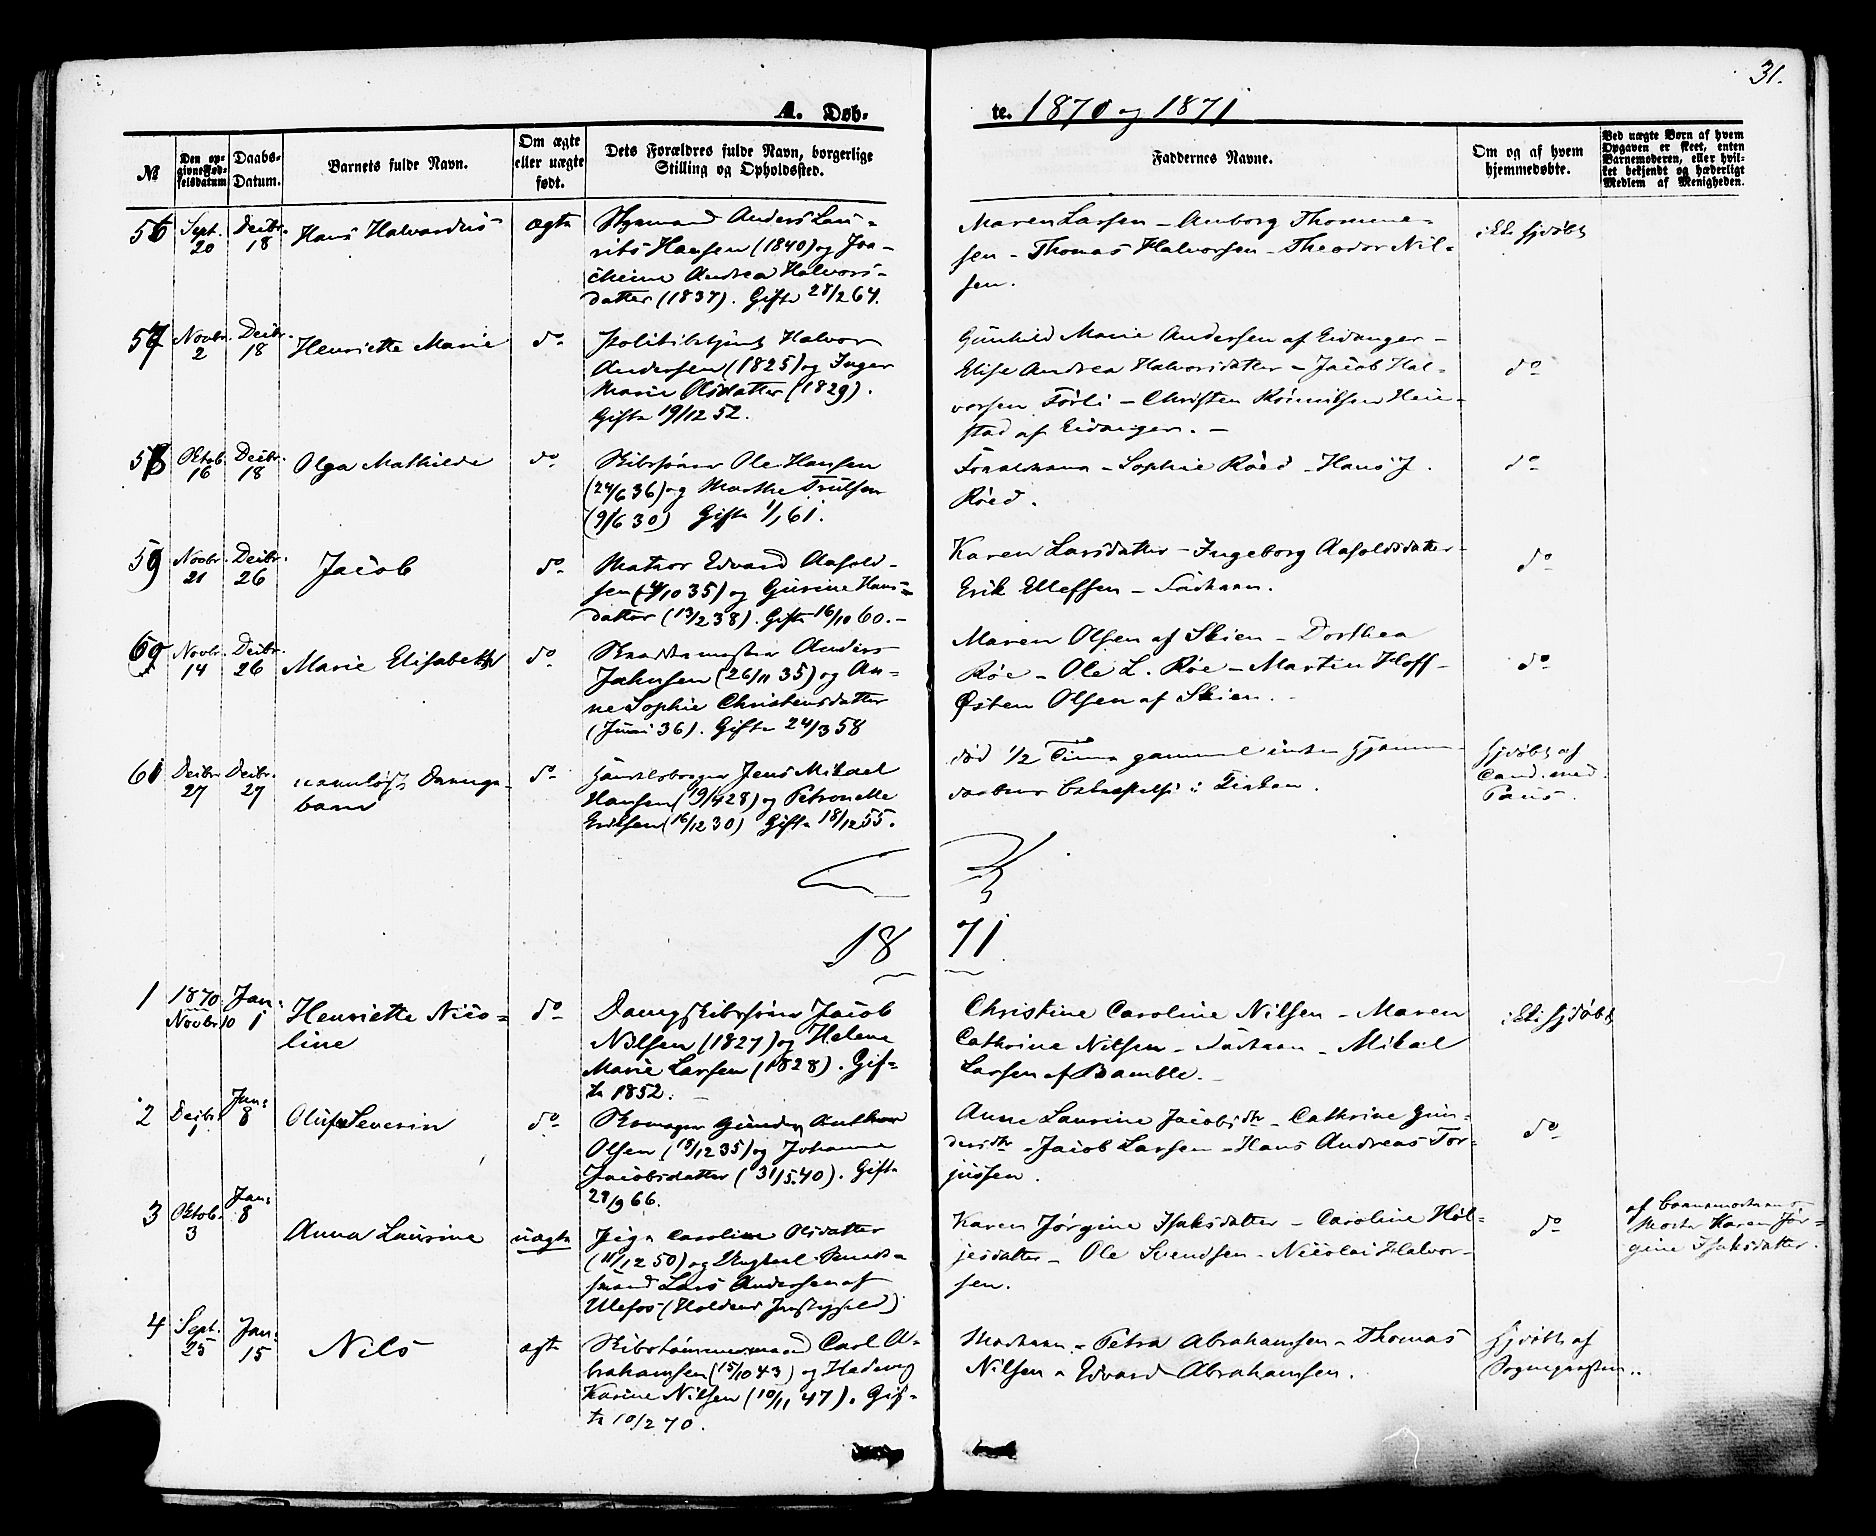 31.
A. Døb-
te. 1870 og 1871
№
Den op-
givne Fød-
selsdatum
Daabs-
Datum.
Barnets fulde Navn.
Om ægte
eller uægte
født.
Dets Forældres fulde Navn, borgerlige
Stilling og Opholdssted.
Faddernes Navne.
Om og af hvem
hjemmedøbte.
Ved uægte Børn af hvem
Opgaven er skeet, enten
Barnemoderen, eller hvil-
ket bekjendt og hæderligt
Medlem af Menigheden.
56
Sept.
20
Decbr.
18
Hans Halvardus
ægte
Styrmand Anders Lau-
rits Hansen (1840) og Joa-
chime Andrea Halvors-
datter (1837). Gifte 28/2 64.
Maren Larsen - Amborg Thomme-
sen - Thomas Halvorsen - Theodor Nil-
sen.
ikke hjdøbt
57
Novbr.
2
Decbr.
18
Henriette Marie
do
Politibetjent Halvor
Andersen (1825) og Inger
Marie Olsdatter (1829).
Gifte 19/12 52.
Gunhild Marie Andersen af Eidanger -
Elise Andrea Halvorsdatter - Jacob Hal-
vorsen Törli - Christen Hei-
stad af Eidanger. -
do
58
Oktob.
16
Decbr.
18
Olga Mathilde
do
Skibsfører Ole Hansen
(24/6 36) og Marthe Trulsen
(9/6 30) Gifte 1/1 61.
Forældrene - Sophie Röed - Hans J.
Röed.
do
59
Novbr.
21
Decbr.
26
Jacob
do
Matros Edvard Aasold-
sen (4/10 35) og Gurine Hans-
datter (13/2 38). Gifte 16/10 60. -
Karen Larsdatter - Ingeborg Aasoldsdatter -
Erik Ellefsen - Faderen.
do
60
Novbr.
14
Decbr.
26
Marie Elisabeth
do
Anders
Jahnsen (26/11 35) og An-
ne Sophie Christensdatter
(Juni 36). Gifte 24/3 58
Maren Olsen af Skien - Dorthea
Röe - Ole L. Röe - Martin Hoff -
Østen Olsen af Skien. -
do
61
Decbr.
27
Decbr.
27
navnløst Drenge-
barn
do
Handelsborger Jens Mikael
Hansen (19/4 28) og Petronelle
Eriksen (16/12 30) Gifte 18/12 55.
död 1/2 Time gammel uden hjemme-
daabens Bekræftelse i Kirken.
hjdøbt af
Cand. med.
Paus.
18 71
1
1870
Novbr 10
Jan:
1
Henriette Nico-
line
do
Dampskibsfører Jacob
Nilsen (1827) og Helene
Marie Larsen (1828). Gif-
te 1852.
Christine Caroline Nilsen - Maren
Cathrine Nilsen - Faderen - Mikal
Larsen af Bamble. -
ikke hjdøbt
2
Decbr.
1
Jan:
8
Oluf Severin
do
Skomager Gunder Anthon
Olsen (18/12 35) og Johanne
Jacobsdatter (31/5 40). Gifte
28/9 66.
Anne Laurine Jacobsdtr - Cathrine Gun-
dersdtr - Jacob Larsen - Hans Andreas Tor-
jussen.
do
3
Oktob.
3
Jan:
8
Anna Laurine
uægte
Pige Caroline Olsdatter
(11/12 50) og Ungkarl
Lars Andersen af
Ulefos (Holdens Præstegjeld)
Karen Jørgine Isaksdatter - Caroline Höl-
jesdatter - Ole Svendsen - Nicolai Halvor-
sen.
do
af barnemoderens
Moster Karen Jør-
gine Isaksdatter.
4
Sept.
25
Jan:
15
Nils
ægte
Skibstømmermand Carl A-
brahamsen (15/10 43) og Hedevig
Karine Nilsen (10/11 47). Gif-
te 10/2 70.
Moderen - Petra Abrahamsen - Thomas
Nilsen - Edvard Abrahamsen.
hjdøbt af
Sognepræsten.